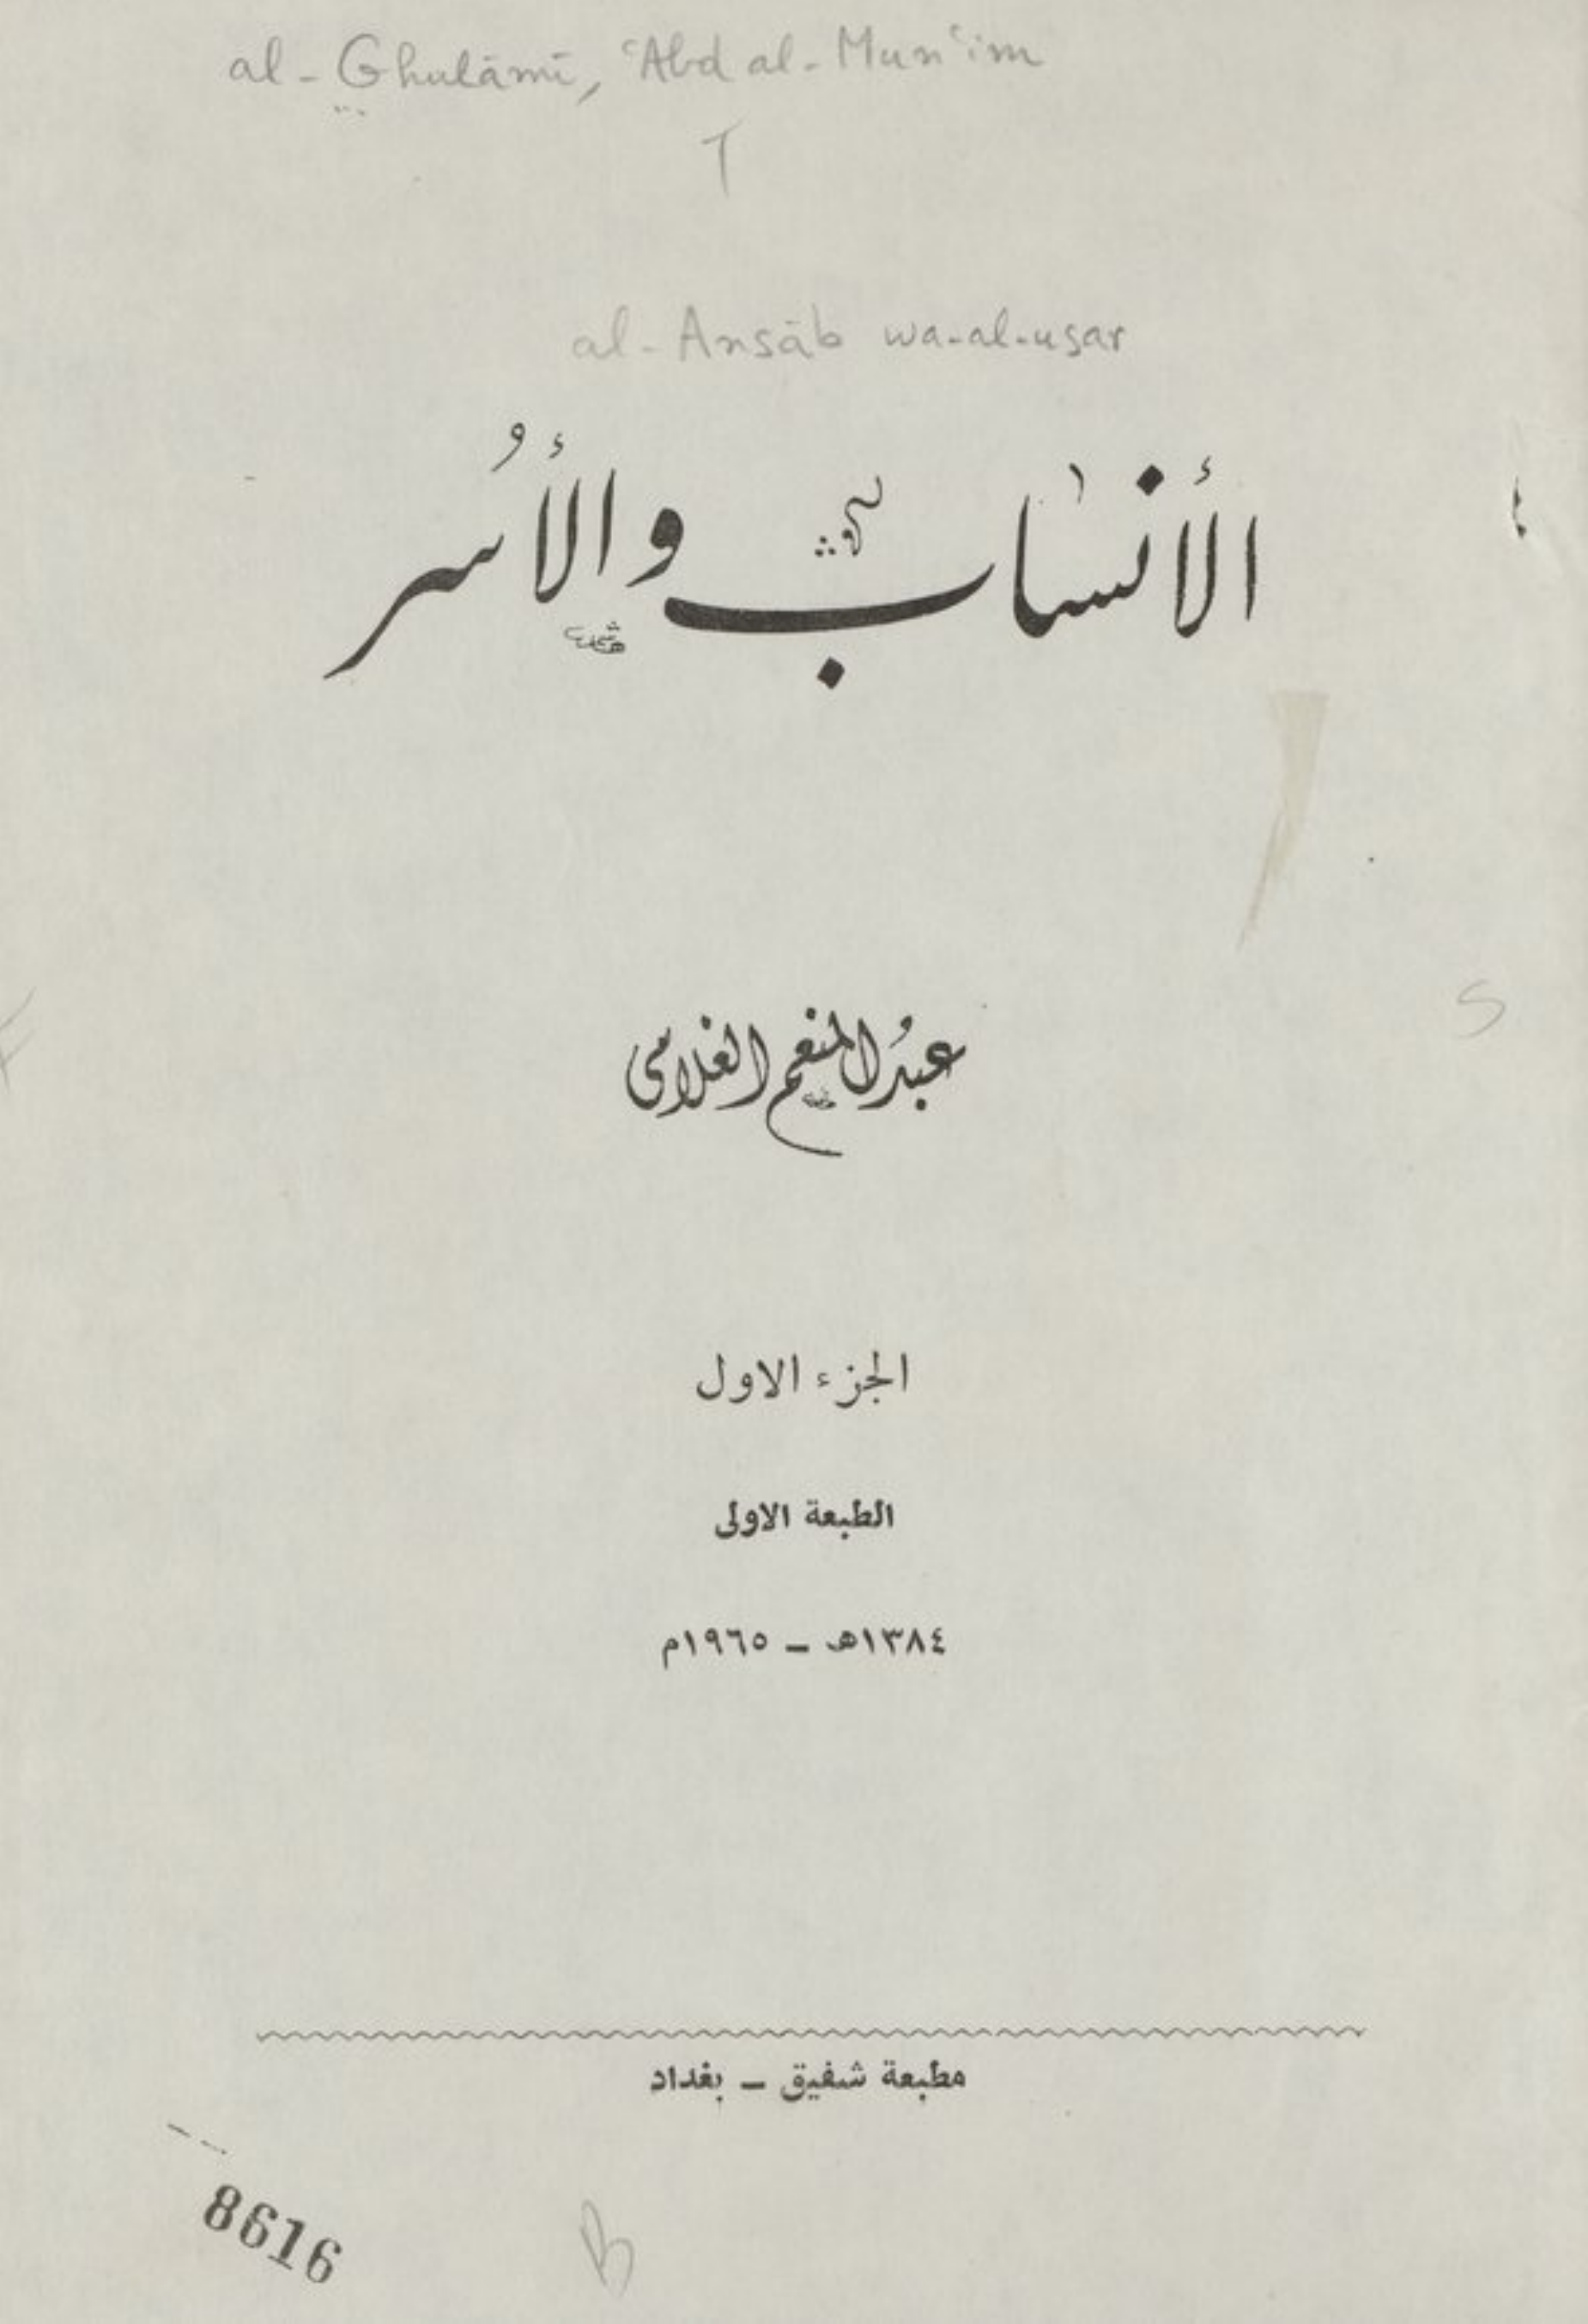 al-Ghulāmī, ʿAbd al-Munʿim
T
al-Ansāb wa-al-usar
الأنساب والأُسر
عبدُ المنعم الغلامي
S
الجزء الاول
الطبعة الاولى
١٣٨٤هـ ــ ١٩٦٥م
مطبعة شفيق ــ بغداد
8616
B